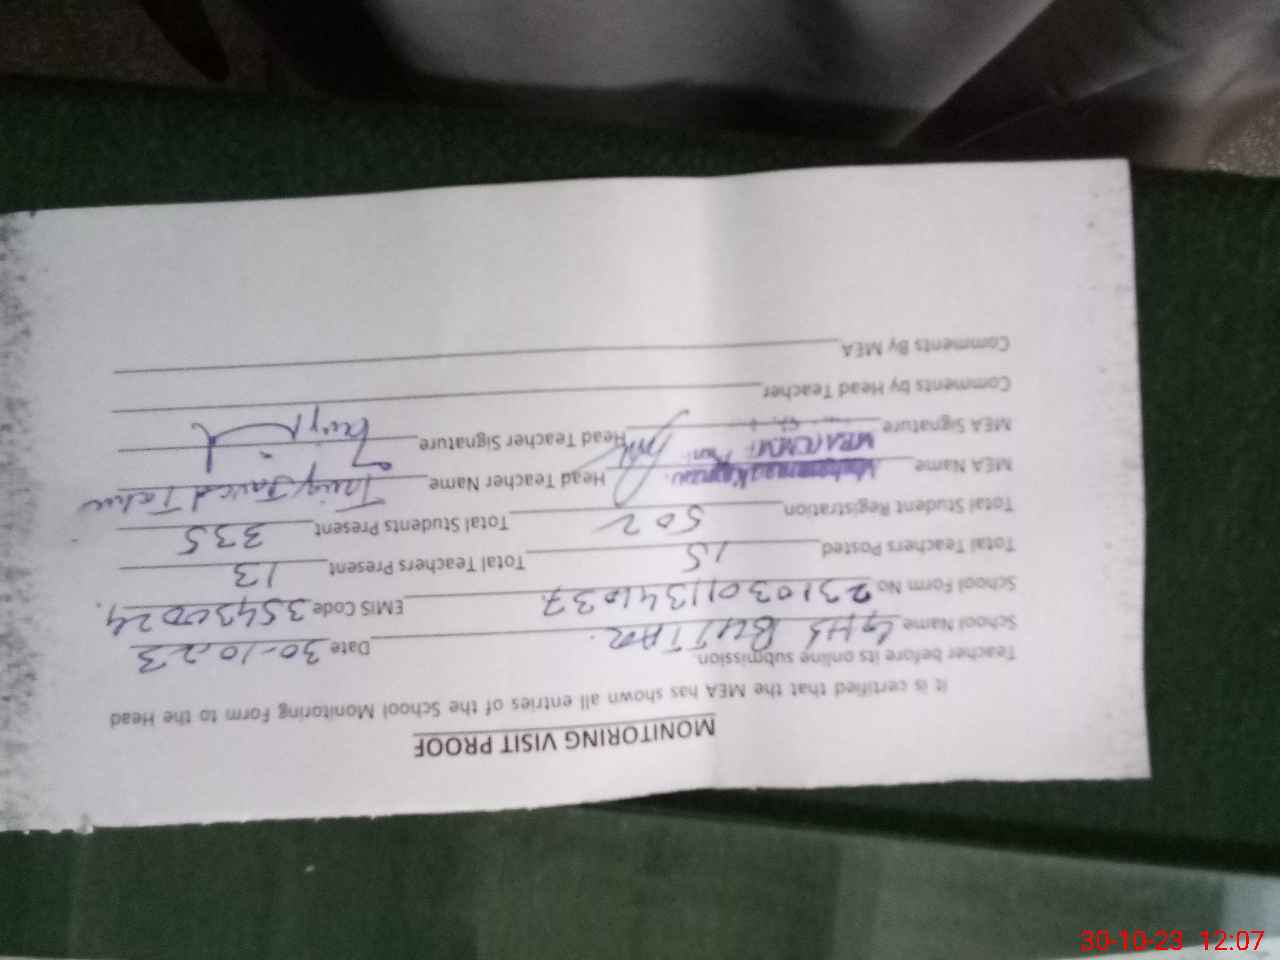 MONITORING VISIT PROOF
It is certified that the MEA has shown all entries of the School Monitoring Form to the Head
Teacher before its online submission.
School Name GHS BUTTAR. Date 30-10-23
School Form No 2310301134037 EMIS Code 35430024.
Total Teachers Posted 15 Total Teachers Present 13
Total Student Registration 502 Total Students Present 335
MEA Name Muhammad Kamran Head Teacher Name Tariq Javed Tahir
MEA Signature Head Teacher Signature
Comments by Head Teacher
Comments By MEA
30-10-23 12:07